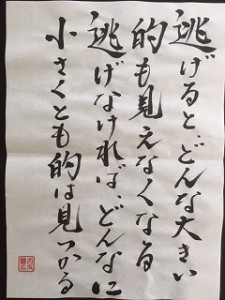 逃げると、どんな大きい
的も見えなくなる
逃げなければ、どんなに
小さくとも的は見つかる